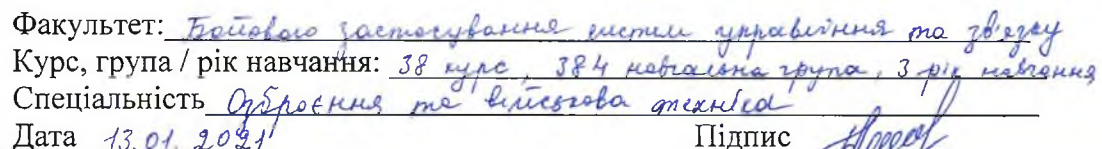 Факультет: Бойового застосування систем управління та зв'язку
Курс, група / рік навчання: 38 курс, 384 навчальна група, 3 рік навчання
Спеціальність Озброєння та військова техніка
Дата 13.01.2021 Підпис